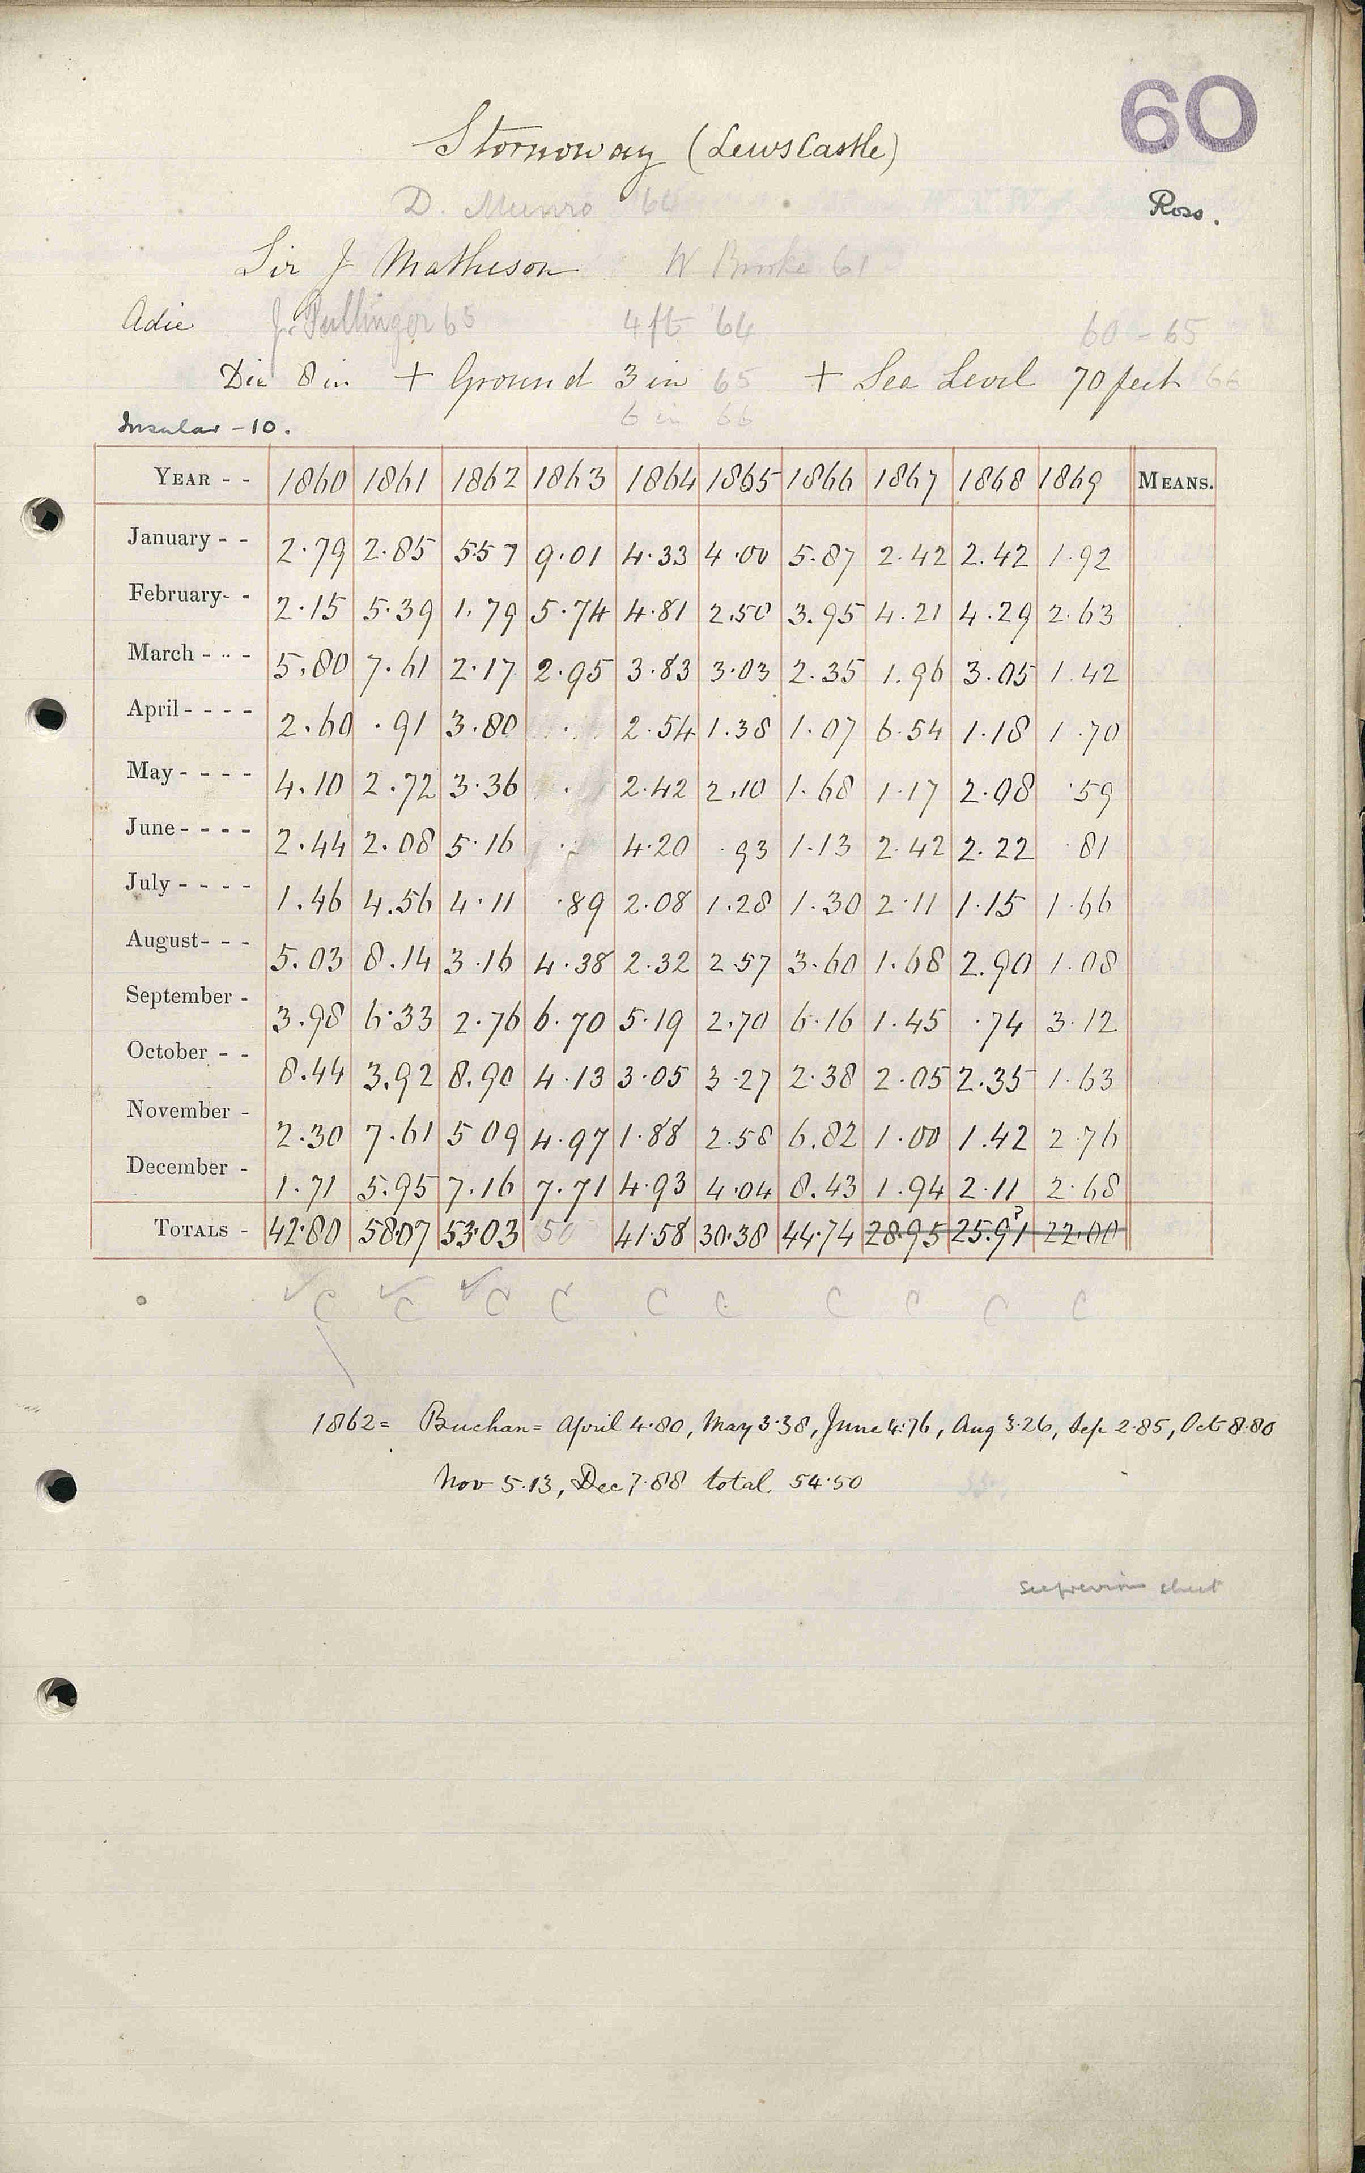 60
Stornoway (Lews Castle)
D. Munro 64
Ross.
Sir J Matheson W Brooke 61
Adie J. Pullinger 65 4 ft 64 60 - 65
Dia 8 in + Ground 3 in 65 + Sea Level 70 feet 66
6 in 66
Insular - 10.
YEAR - - 1860 1861 1862 1863 1864 1865 1866 1867 1868 1869 MEANS.
January - - 2.79 2.85 5.57 9.01 4.33 4.00 5.87 2.42 2.42 1.92
February- - 2.15 5.39 1.79 5.74 4.81 2.50 3.95 4.21 4.29 2.63
March - - - 5.80 7.61 2.17 2.95 3.83 3.03 2.35 1.96 3.05 1.42
April - - - - 2.60 .91 3.80 . 2.54 1.38 1.07 6.54 1.18 1.70
May - - - - 4.10 2.72 3.36 . 2.42 2.10 1.68 1.17 2.08 .59
June - - - - 2.44 2.08 5.16 . 4.20 .93 1.13 2.42 2.22 .81
July - - - - 1.46 4.56 4.11 .89 2.08 1.28 1.30 2.11 1.15 1.66
August- - - 5.03 8.14 3.16 4.38 2.32 2.57 3.60 1.68 2.90 1.08
September - 3.98 6.33 2.76 6.70 5.19 2.70 6.16 1.45 .74 3.12
October - - 8.44 3.92 8.90 4.13 3.05 3.27 2.38 2.05 2.35 1.63
November - 2.30 7.61 5 09 4.97 1.88 2.58 6.82 1.00 1.42 2.76
December - 1.71 5.95 7.16 7.71 4.93 4.04 8.43 1.94 2.11 2.68
TOTALS - 42.80 58.07 53.03 50 41.58 30.38 44.74 28.95 25.91? 22.00
C C C C C C C C C C
1862 = Buchan = April 4.80, May 3.38, June 4.76, Aug 3.26, Sep 2.85, Oct 8.80
Nov 5.13, Dec 7.88 total 54.50
See previous sheet